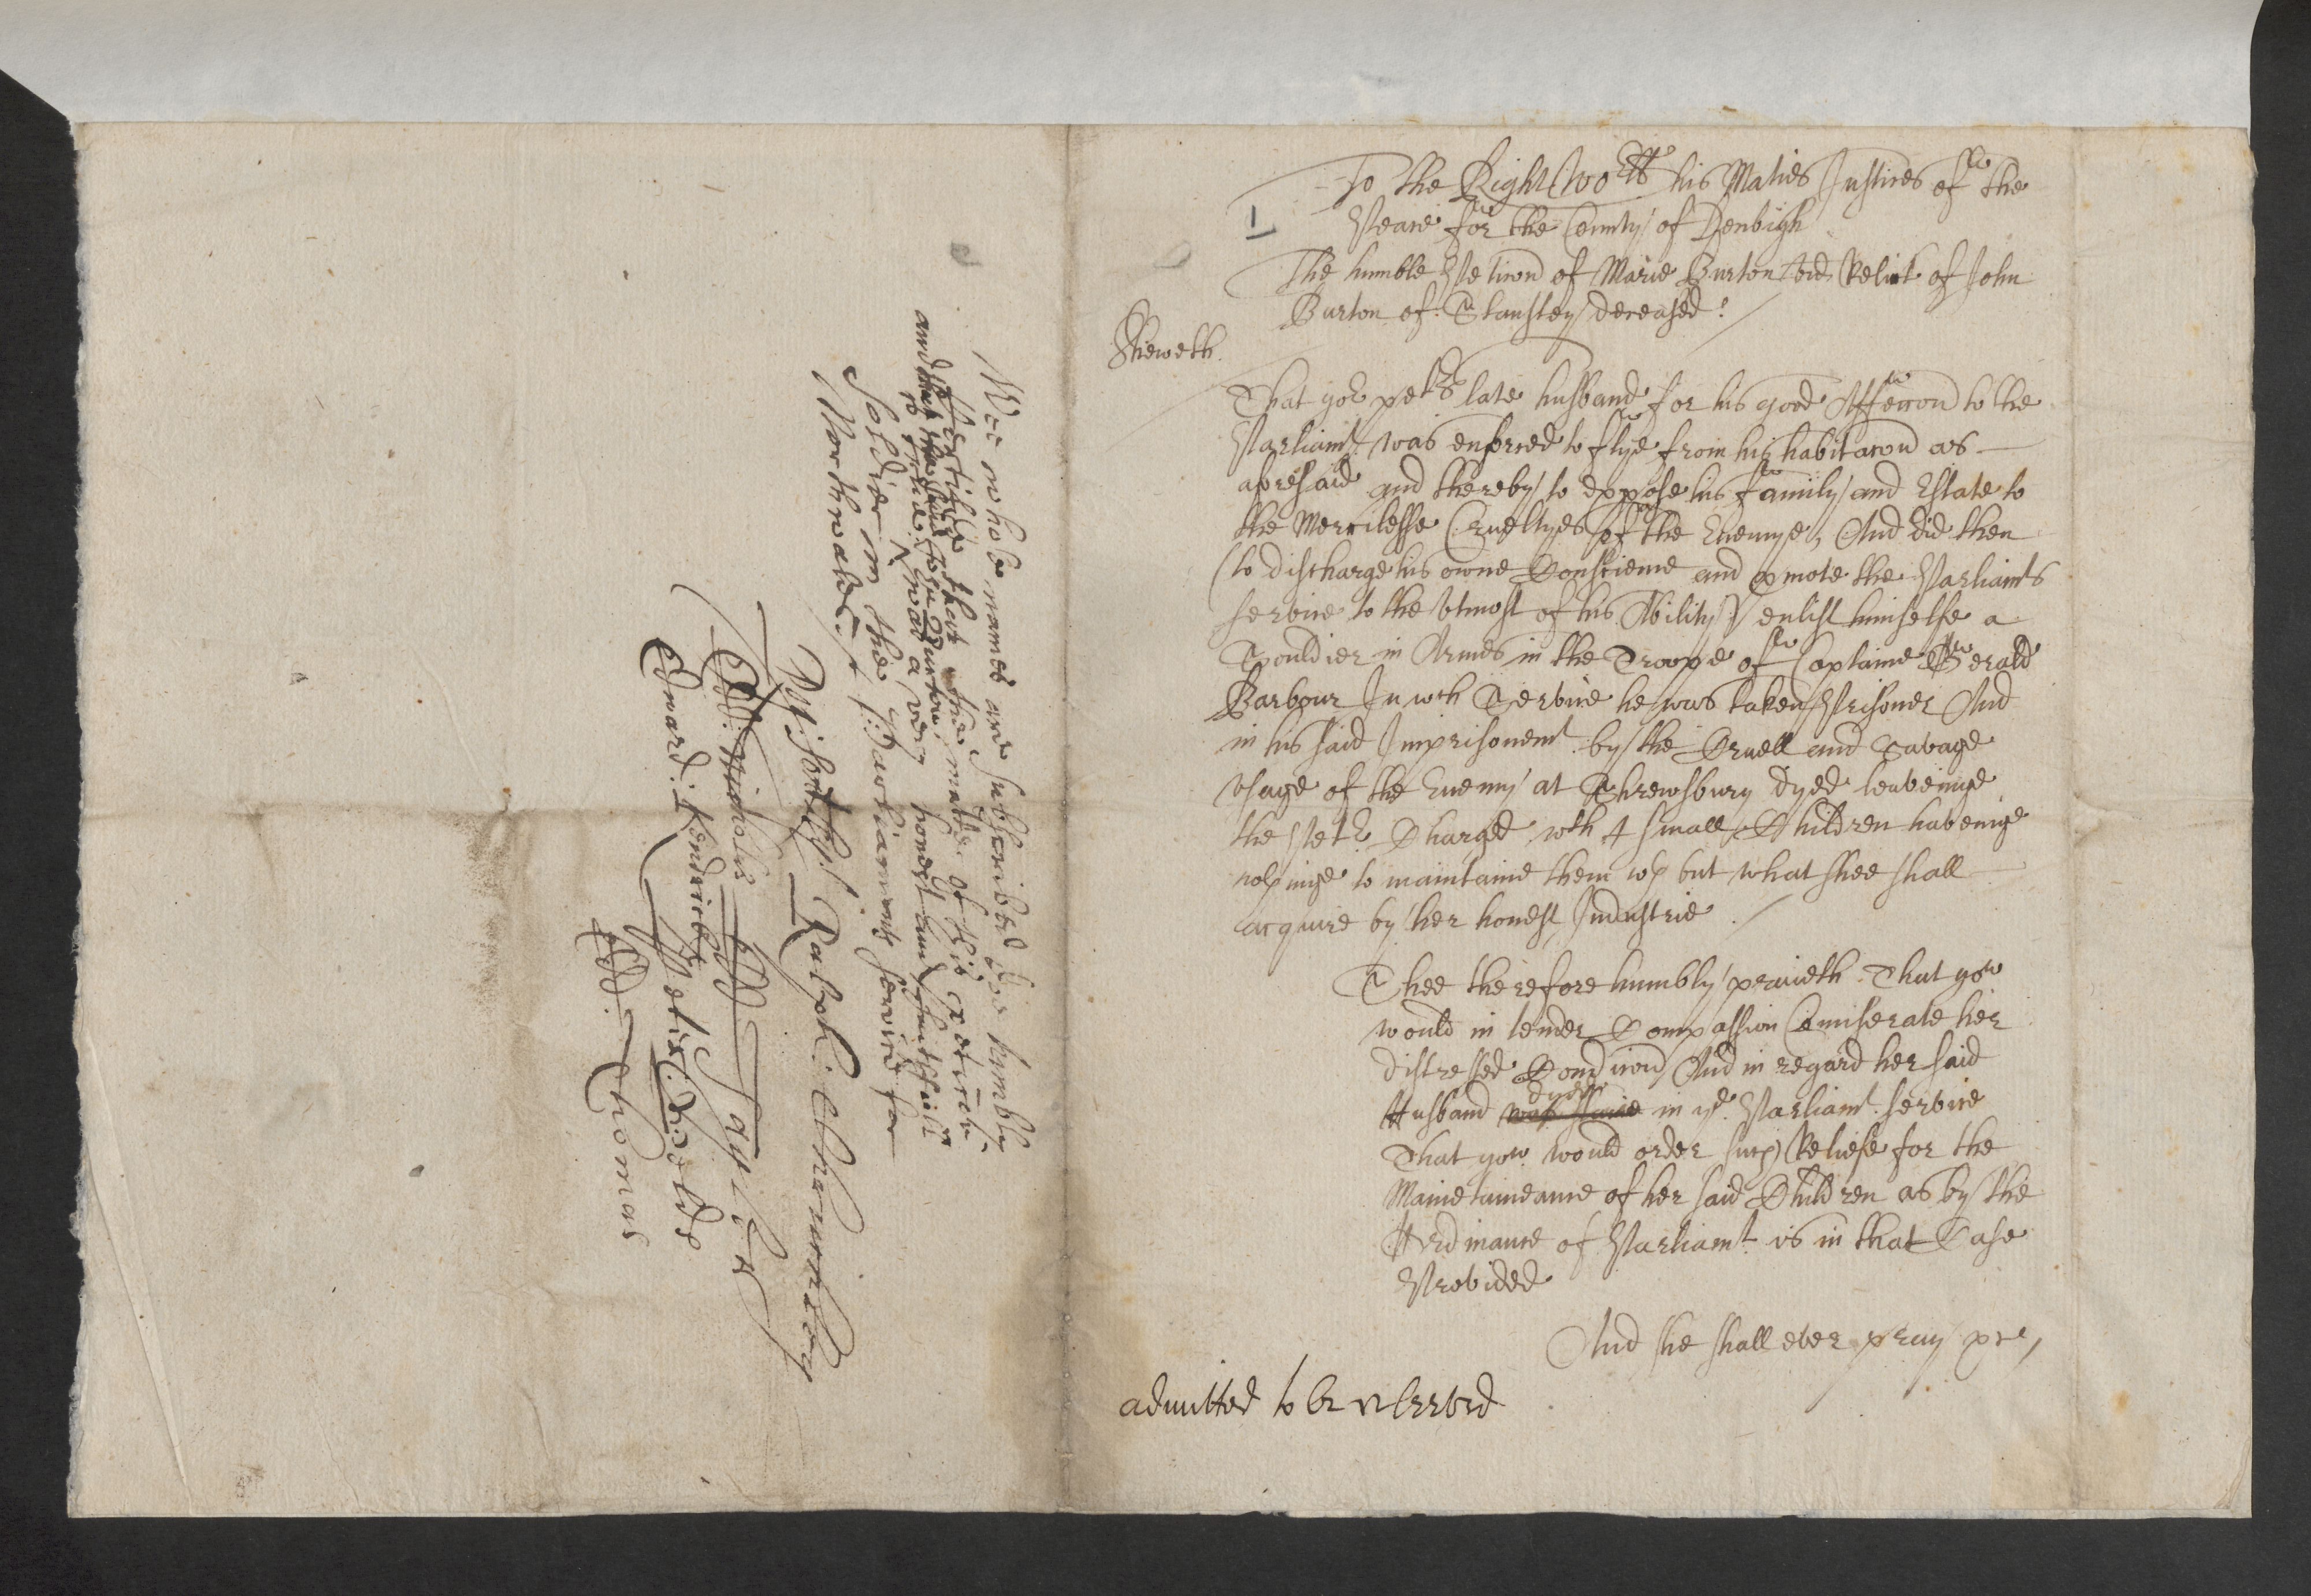 1
To the Right Wo:pll his Maties Justices of the
Peace for the County of Denbigh
The humble Peticon of Marie Burton wid. Relict of John
Burton of Stansley deceased:
Sheweth.
That yor petrs late husband for his good Affeccon to the
Parliamt. was enforced to flye from his habitacon as
aforesaid and thereby to expose his family and Estate to
the Mercilesse Crueltyes of the Enemye, And did then
(to discharge his owne Conscience and pmote the Parliamts
service to the utmost of his Ability) enlist himselfe a
Souldier in Armes in the Troope of Captaine Gerald
Barbour In wch Service he was taken Prisoner And
in his said Imprisonemt. by the Cruell and Savage
usage of the Enemy at Shrewsbury dyed leaveinge
the Petr. Charged wth 4 small Children haveinge
nothinge to maintaine them wth but what shee shall
acquire by her honest Industrie
Shee therefore humbly praieth That yow
would in tender Compassion Comiserate her
distressed Condicion And in regard her said
Husband was slaine dyed in ye. Parliamt. service
That yow would order such Reliefe for the
Mainetaineance of her said Children as by the
Ordinance of Parliamt. is in that Case
Provided
And she shall ever pray &c,
admitted to be releeved
Wee whose names are subscribed doe humbly
Certifie that the matter of this peticon
is true. and that the said John Burton
was a very honest and faithfull
soldier in the Parliaments service for
Northwales
Ralph: Cholmondley
Edd: Nicholls
Edward: Kendrick
Ed. Thomas